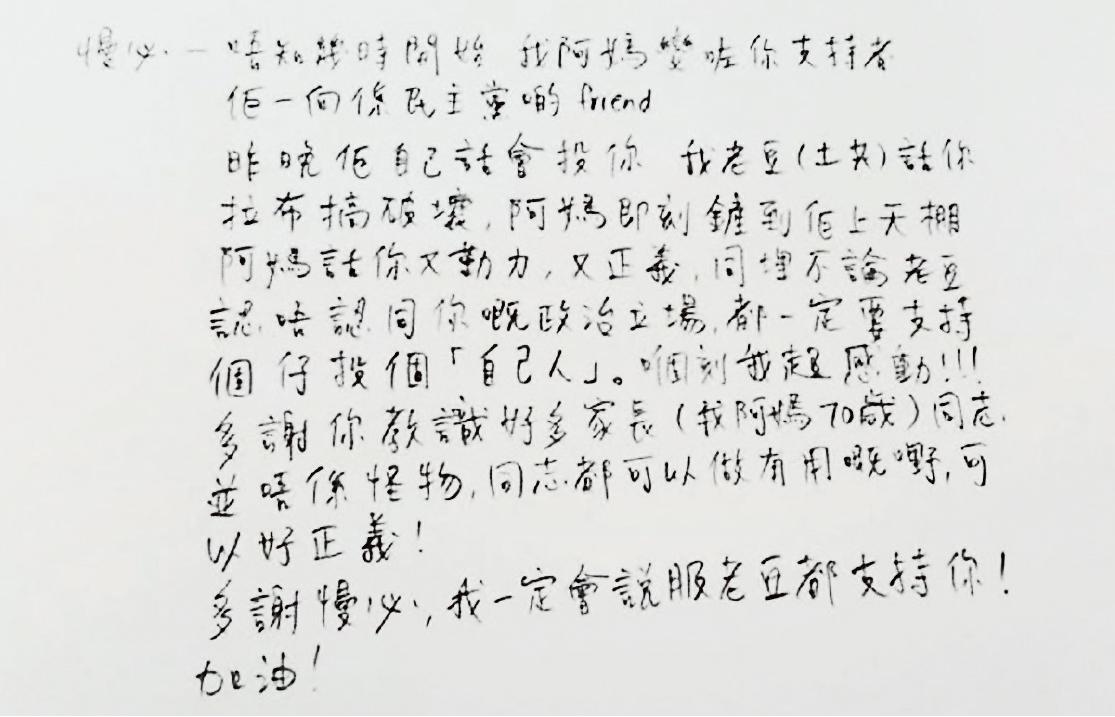 慢必.— 唔知幾時開始 我阿媽變咗你支持者
佢一向係民主黨啲friend
昨晚佢自己話會投你 我老豆(土共)話你
拉布搞破壞,阿媽即刻鏟到佢上天棚
阿媽話你又勤力,又正義,同埋不論老豆
認唔認同你嘅政治立場,都一定要支持
個仔投個「自己人」。嗰刻我超感動!!!
多謝你教識好多家長(我阿媽70歲)同志
並唔係怪物,同志都可以做有用嘅嘢,可
以好正義!
多謝慢必,我一定會説服老豆都支持你!
加油!